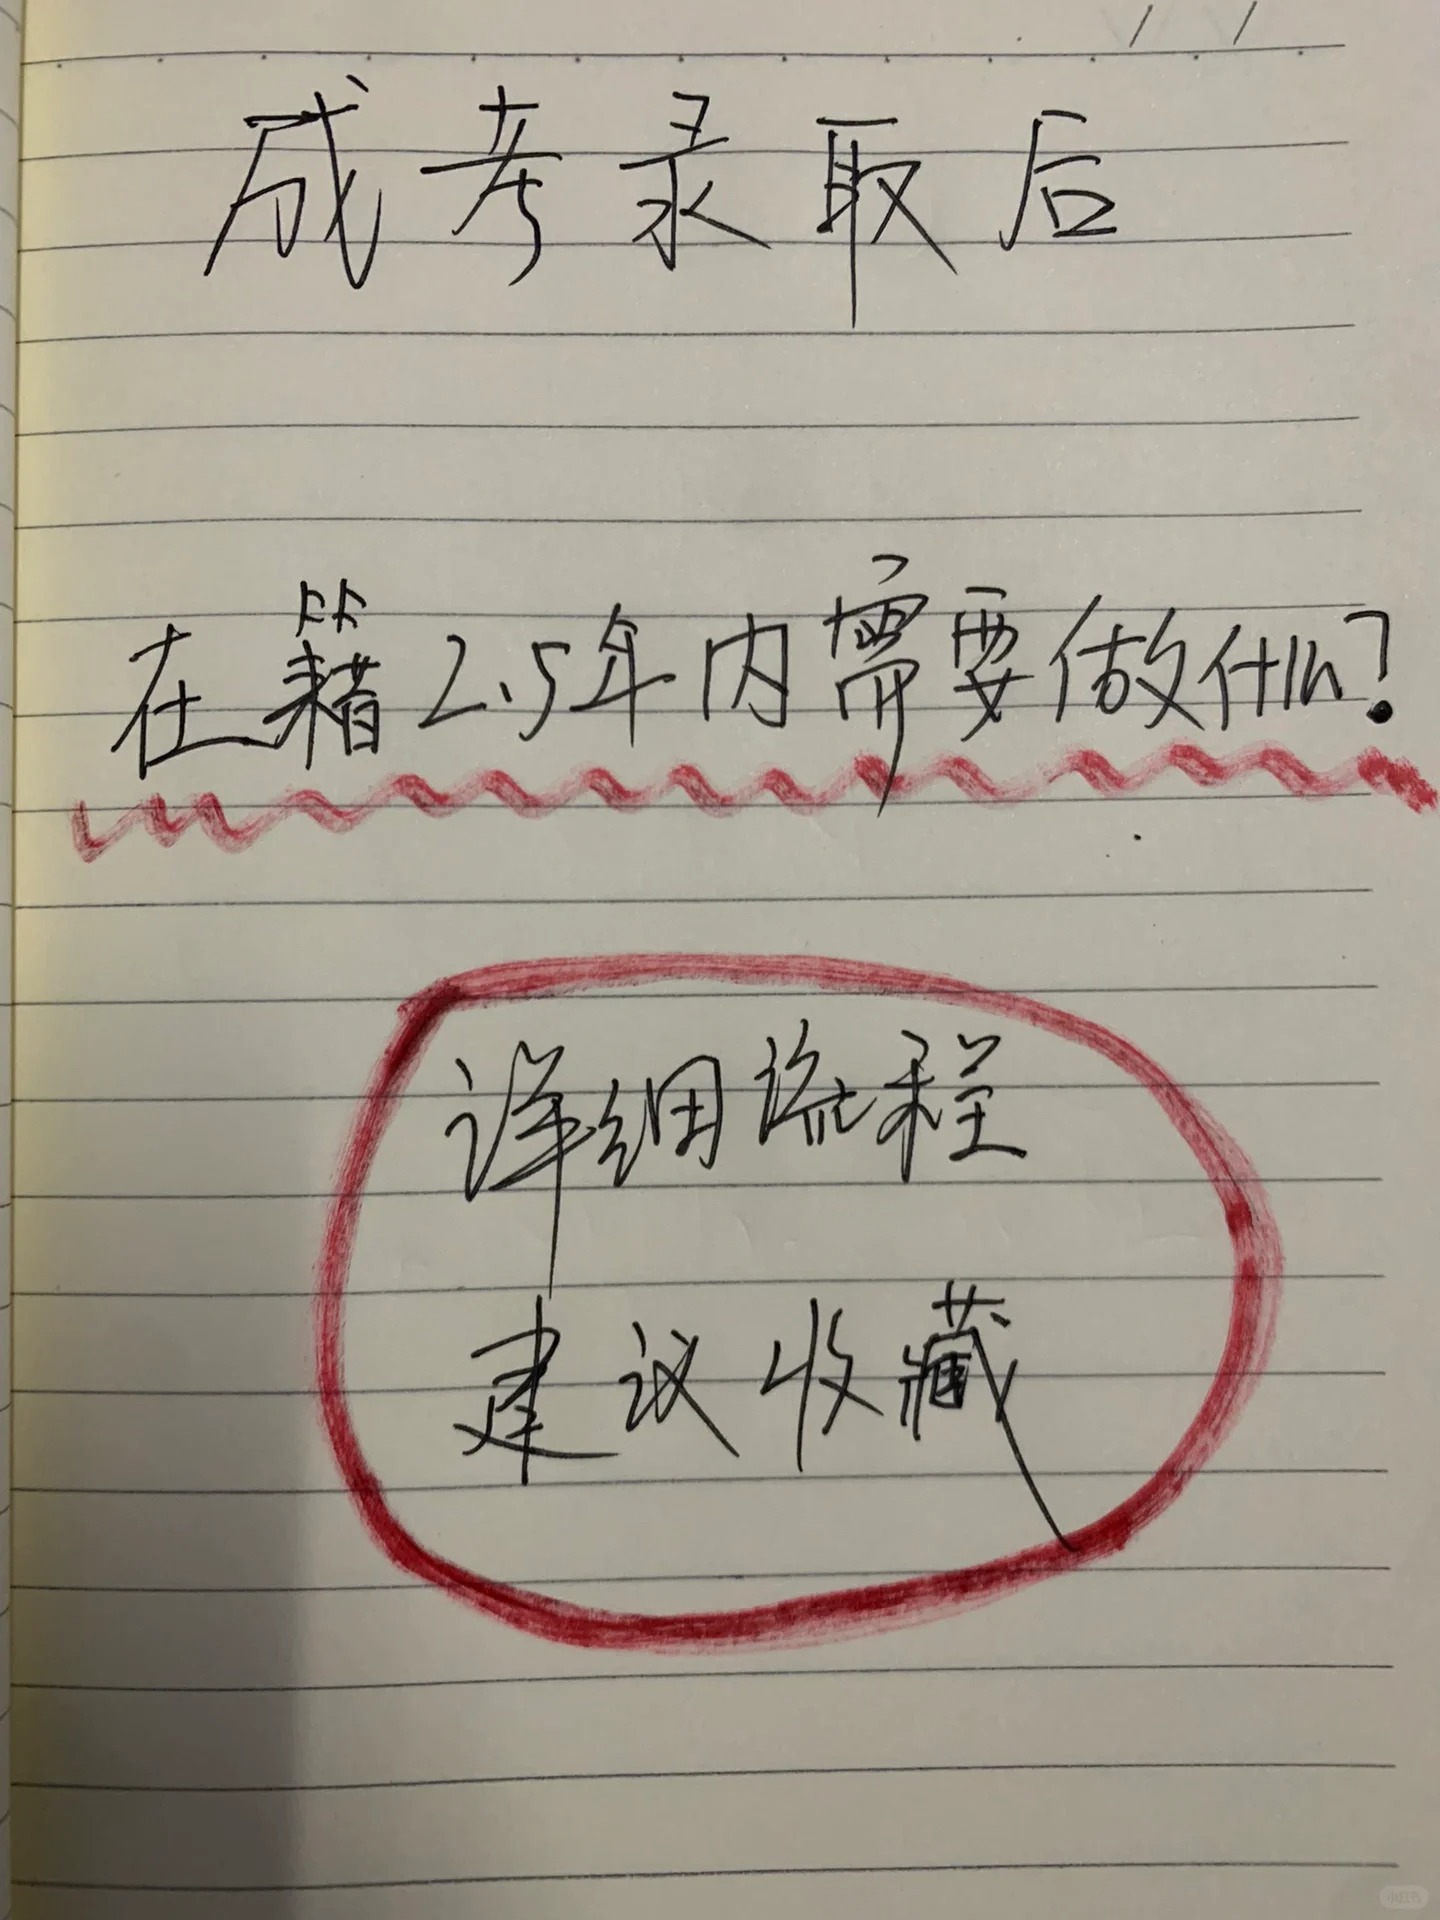 成考录取后
在籍2.5年内需要做什么?
详细流程
建议收藏
小红书